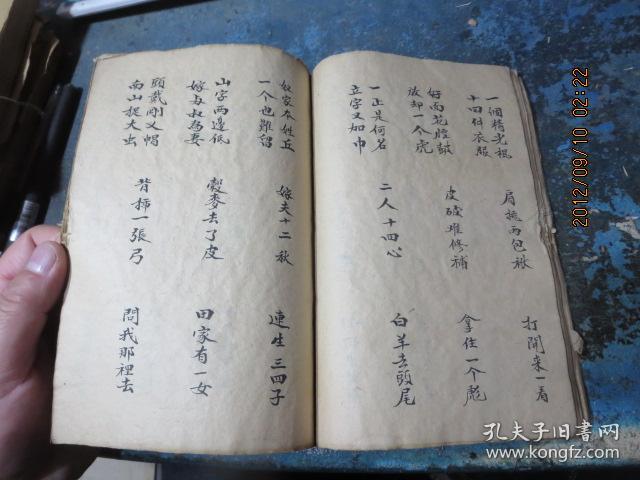 一個精光棍
肩挑两包袱
打開来一看
十四件衣服
好面花腔鼓
皮破难修補
拿住一个彪
放却一个虎
一正是何名
二人十四心
白羊去頭尾
立字又加巾
奴家本姓丘
嫁夫十二秋
連生三四子
一个也難留
山字两邊低
穀麥去了皮
田家有一女
嫁与叔為妻
頭戴剛叉帽
背揷一張弓
問我那裡去
南山捉大虫
2012/09/10 02:22
孔夫子旧书网
kongfz.com